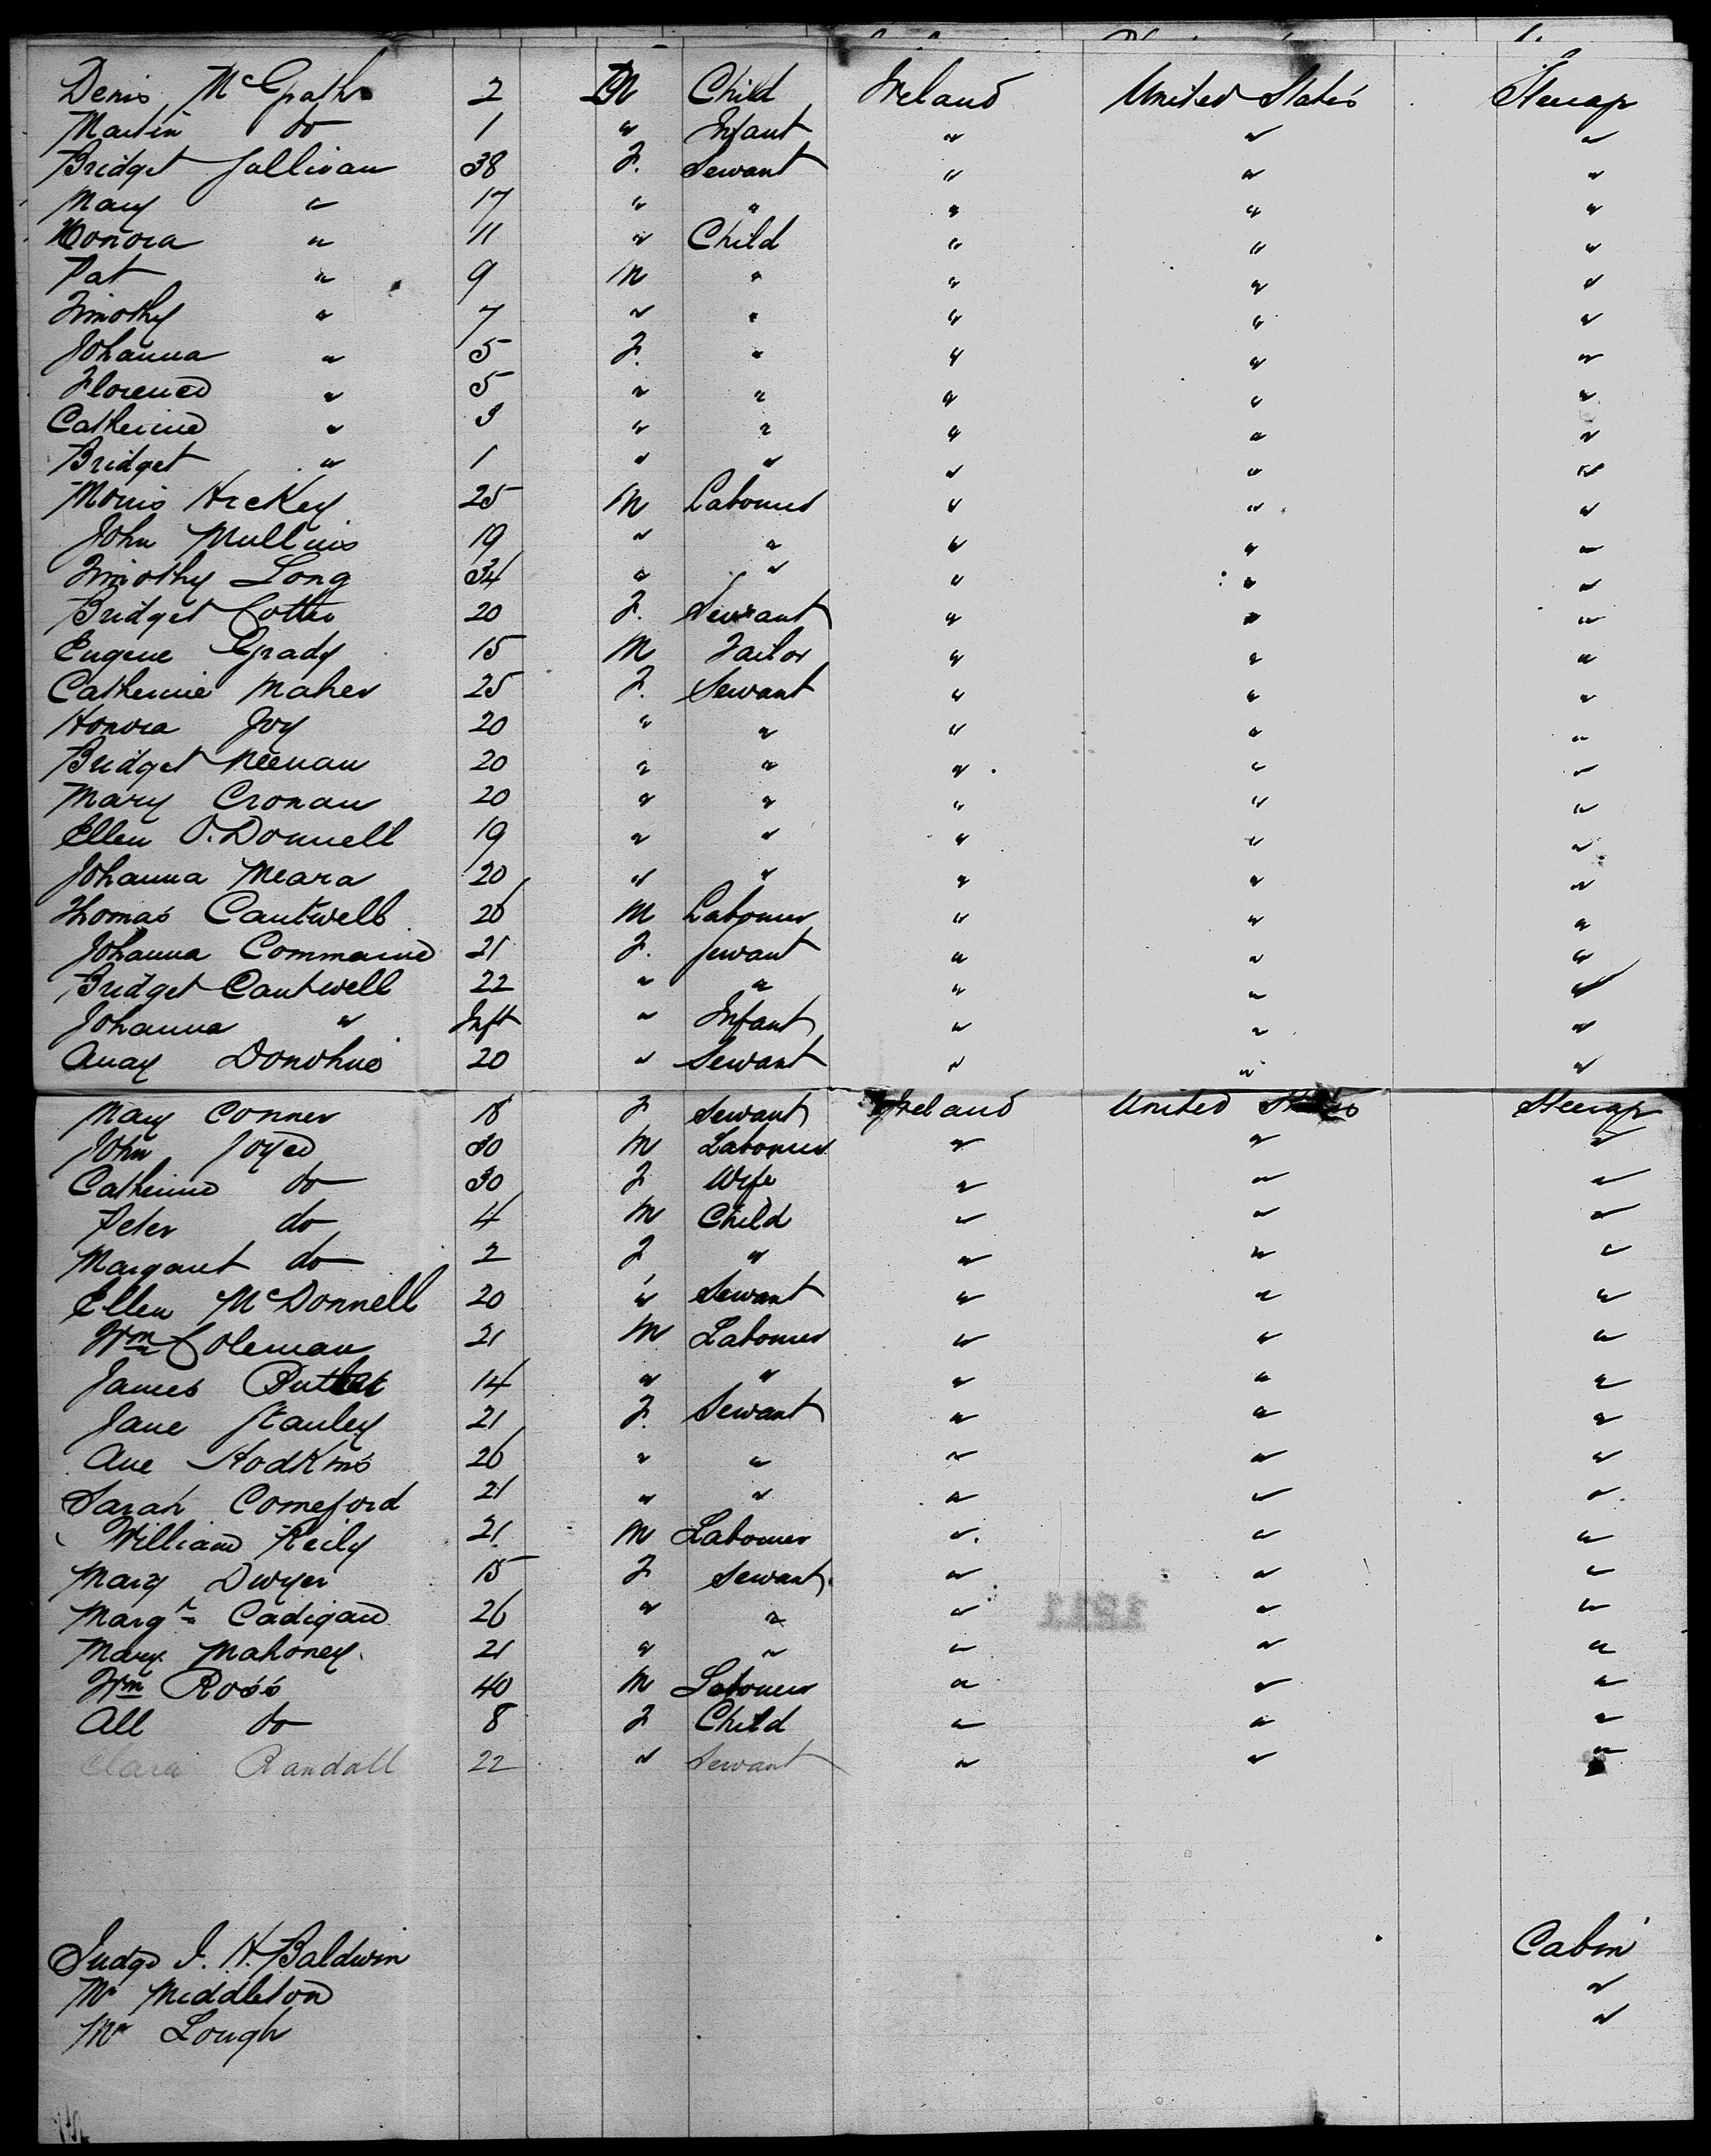 Denis McGrath 2 M Child Ireland United States Steerage
Martin do 1 " Infant " " "
Bridget Sullivan 38 F. Servant " " "
Mary " 17 " " " " "
Honora " 11 " Child " " "
Pat " 9 M " " " "
Timothy " 7 " " " " "
Johanna " 5 F. " " " "
Florence " 5 " " " " "
Catherine " 3 " " " " "
Bridget " 1 " " " " "
Morris Hickey 25 M Labourer " " "
John Mullins 19 " " " " "
Timothy Long 34 " " " " "
Bridget Cotter 20 F. Servant " " "
Eugene Grady 15 M Tailor " " "
Catherine Maher 25 F. Servant " " "
Honora Joy 20 " " " " "
Bridget Neenan 20 " " " " "
Mary Cronan 20 " " " " "
Ellen O.Donnell 19 " " " " "
Johanna Meara 20 " " " " "
Thomas Cantwell 26 M Labourer " " "
Johanna 21 F. Servant " " "
Bridget Cantwell 22 " " " " "
Johanna " Inft " Infant " " "
Donohue 20 " Servant " " "
Mary Conner 18 F Servant Ireland United States Steerage
John Joyce 30 M Labourer " " "
Catherine do 30 F Wife " " "
Peter do 4 M Child " " "
Margaret do 2 F " " " "
Ellen McDonnell 20 " Servant " " "
Wm Coleman 21 M Labourer " " "
James Butler 14 " " " " "
Jane Stanley 21 F. Servant " " "
Ane Hodkins 26 " " " " "
Sarah Comeford 21 " " " " "
William Reily 21 M Labourer " " "
Mary Dwyer 15 F Servant " " "
Margt Cadigan 26 " " " " "
Mary Mahoney 21 " " " " "
Wm Ross 40 M Labourer " " "
All do 8 F Child " " "
Clara Randall 22 " Servant " " "
Judge I. H. Baldwin Cabin
Mr Middleton "
Mr Lough "